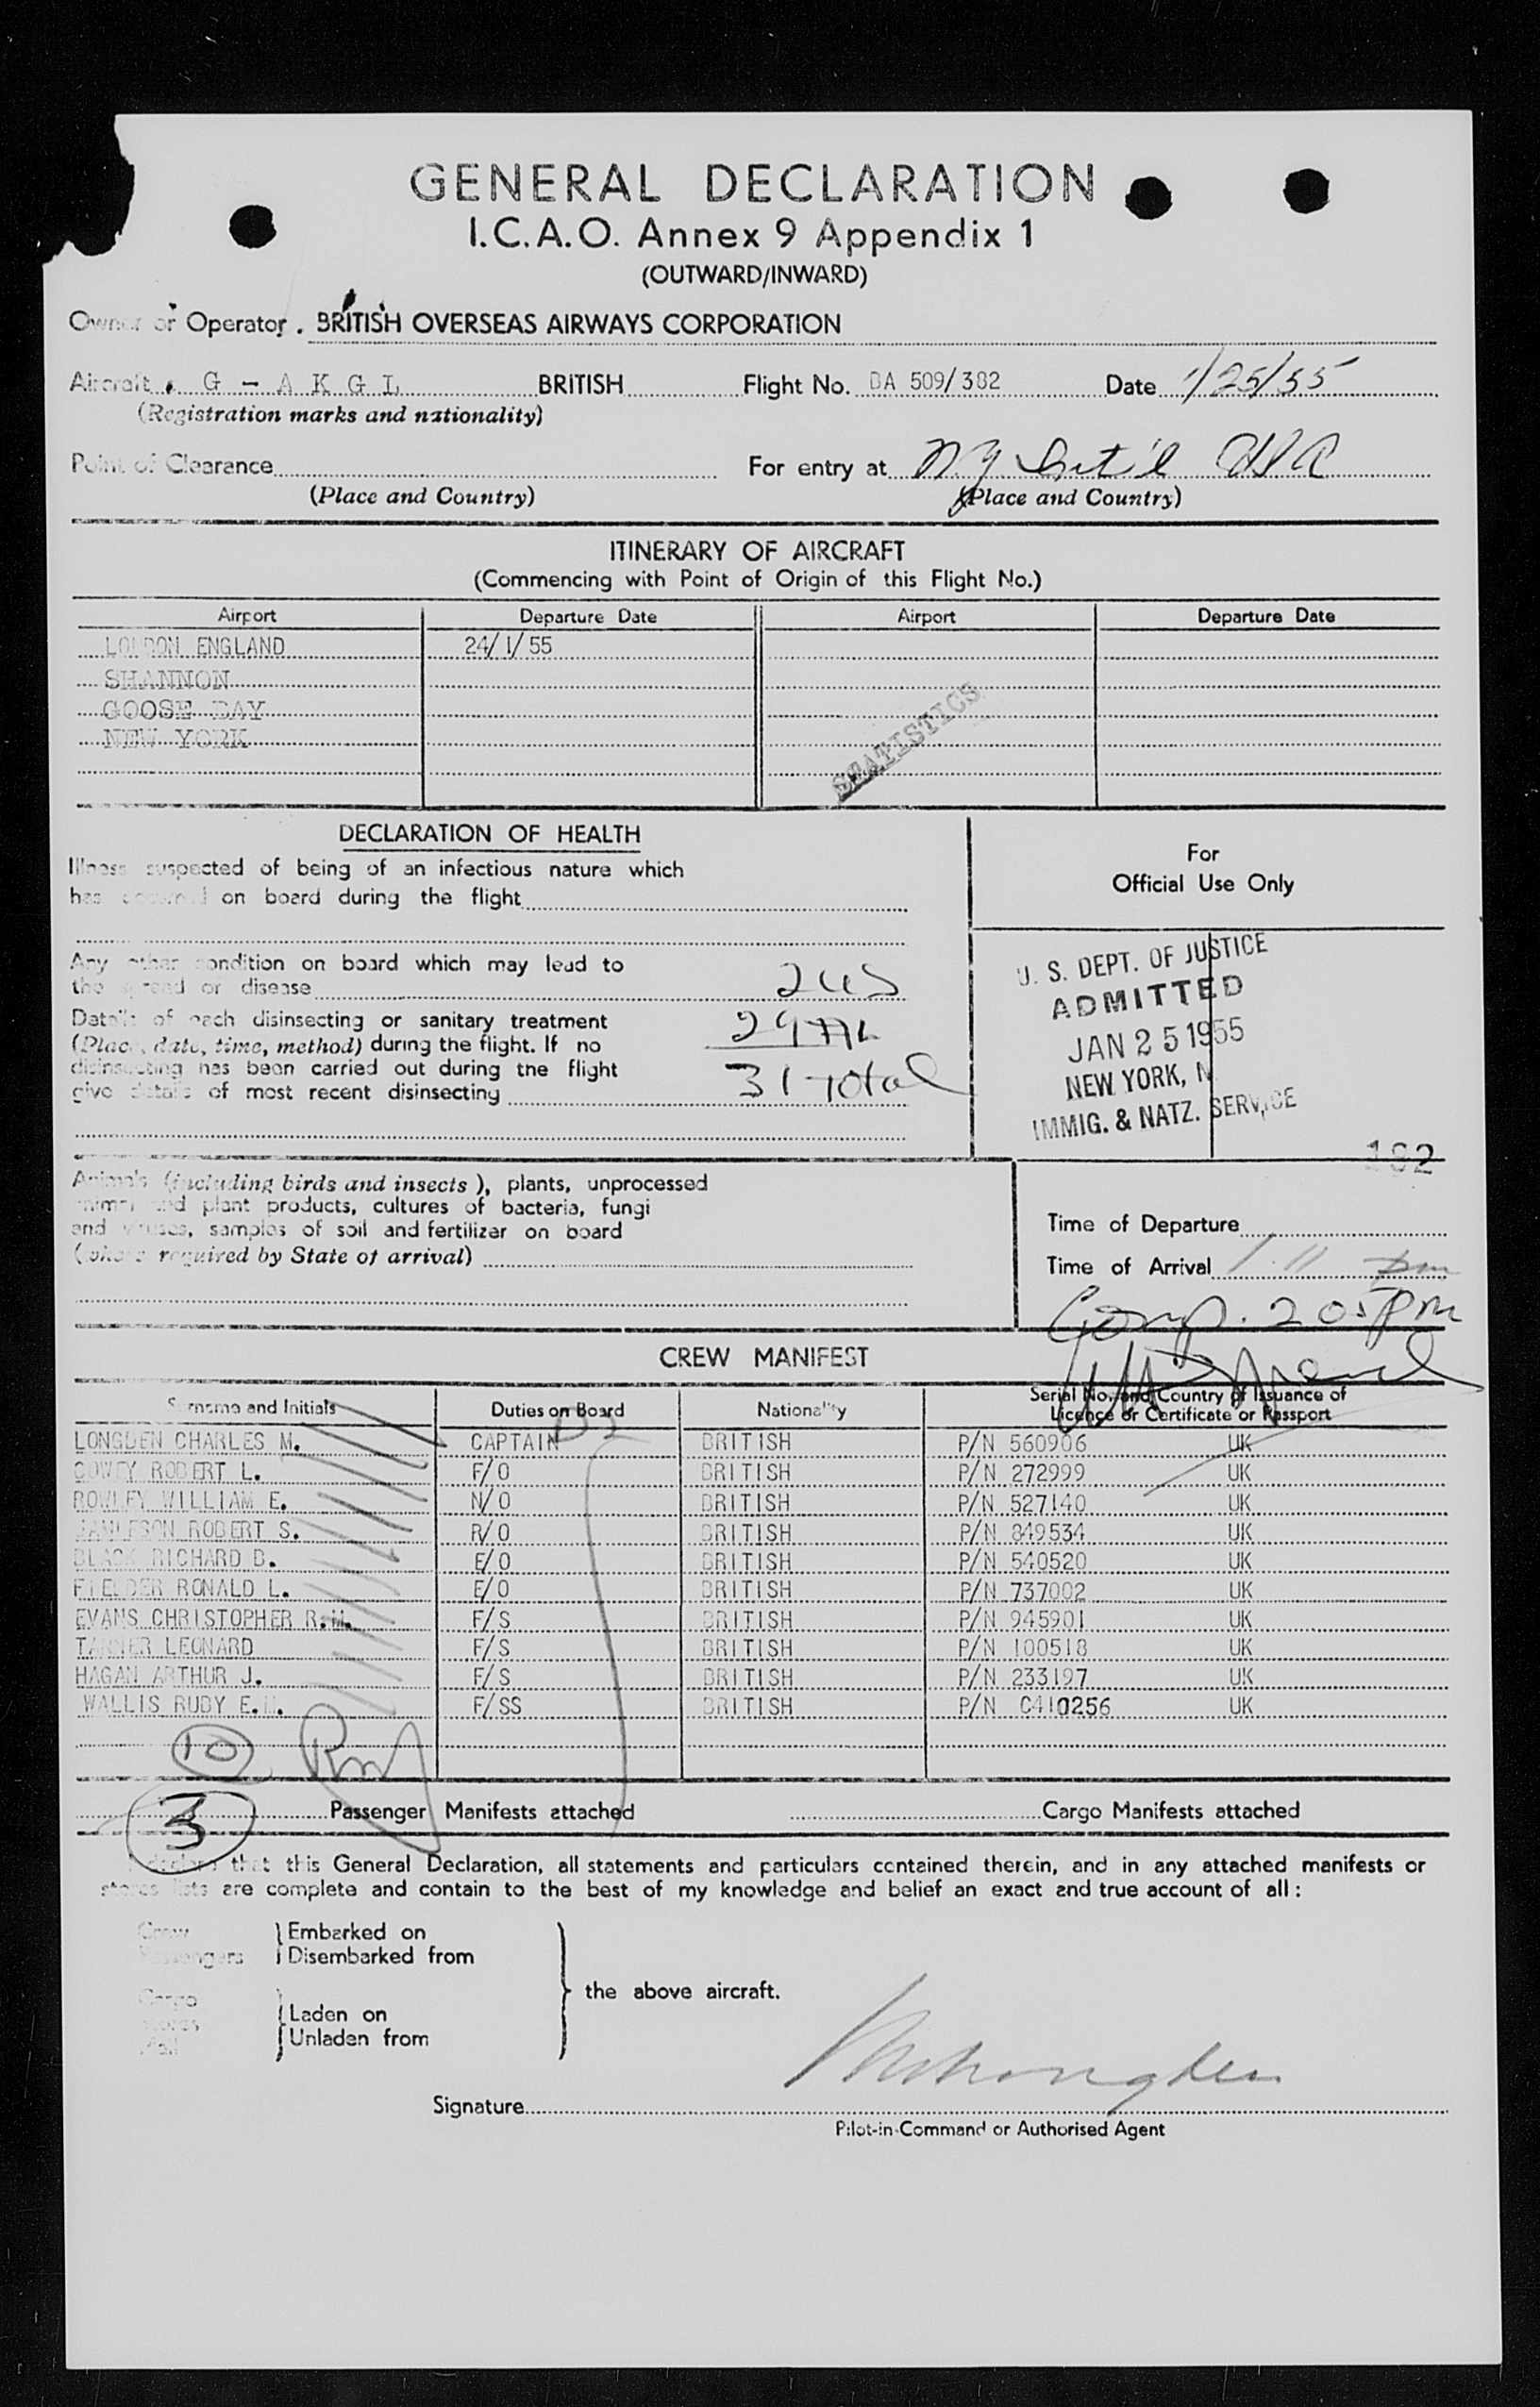 GENERAL DECLARATION
I.C.A.O. Annex 9 Appendix 1
(OUTWARD/INWARD)
Owner or Operator. BRITISH OVERSEAS AIRWAYS CORPORATION
Aircraft G - A K G L BRITISH Flight No. BA 509/382 Date 1/25/55
(Registration marks and nationality)
Point of Clearance For entry at N.Y Int'l USA
(Place and Country) (Place and Country)
ITINERARY OF AIRCRAFT
(Commencing with Point of Origin of this Flight No.)
Airport Departure Date Airport Departure Date
LONDON ENGLAND 24/1/55
SHANNON
GOOSE BAY
NEW YORK
STATISTICS
DECLARATION OF HEALTH
Illness suspected of being of an infectious nature which
has occurred on board during the flight
Any other condition on board which may lead to
the spread or disease 2 US
Details of each disinsecting or sanitary treatment 29
(Place, date, time, method) during the flight. If no
disinsecting has been carried out during the flight 31 total
give details of most recent disinsecting
For
Official Use Only
U. S. DEPT. OF JUSTICE
ADMITTED
JAN 25 1955
NEW YORK, N
IMMIG. & NATZ. SERVICE
182
Animals (including birds and insects), plants, unprocessed
animal and plant products, cultures of bacteria, fungi
and viruses, samples of soil and fertilizer on board
(where required by State of arrival)
Time of Departure
Time of Arrival 1.11 pm
Comp. 205 pm
CREW MANIFEST
Surname and Initials Duties on Board Nationality Serial No. and Country of Issuance of
Licence or Certificate or Passport
LONGDEN CHARLES M. CAPTAIN BRITISH P/N 560906 UK
COWEY ROBERT L. F/O BRITISH P/N 272999 UK
ROWLEY WILLIAM E. N/O BRITISH P/N 527140 UK
JAMIESON ROBERT S. R/O BRITISH P/N 849534 UK
BLACK RICHARD B. E/O BRITISH P/N 540520 UK
FIELDER RONALD L. E/O BRITISH P/N 737002 UK
EVANS CHRISTOPHER R.M. F/S BRITISH P/N 945901 UK
TANNER LEONARD F/S BRITISH P/N 100518 UK
HAGAN ARTHUR J. F/S BRITISH P/N 233197 UK
WALLIS RUBY E. F/SS BRITISH P/N C410256 UK
10
3 Passenger Manifests attached Cargo Manifests attached
I declare that this General Declaration, all statements and particulars contained therein, and in any attached manifests or
stores lists are complete and contain to the best of my knowledge and belief an exact and true account of all :
Crew Embarked on
Passengers Disembarked from
the above aircraft.
Cargo
Stores Laden on
Mail Unladen from
Signature CM Longden
Pilot-in-Command or Authorised Agent